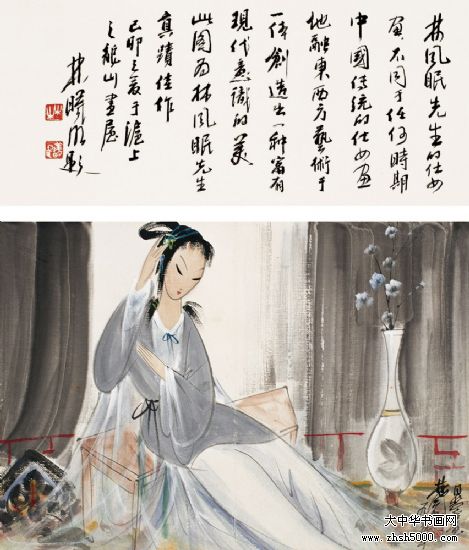 林風眠先生的仕女
画不同于任何時期
中國传统的仕女画
他融東西方藝術于
一体創造出一种富有
現代意識的美
此图为林風眠先生
真蹟佳作
己卯之夏于滬上
山書屋
林曦明题
大中华书画网
www.zhsh5000.com